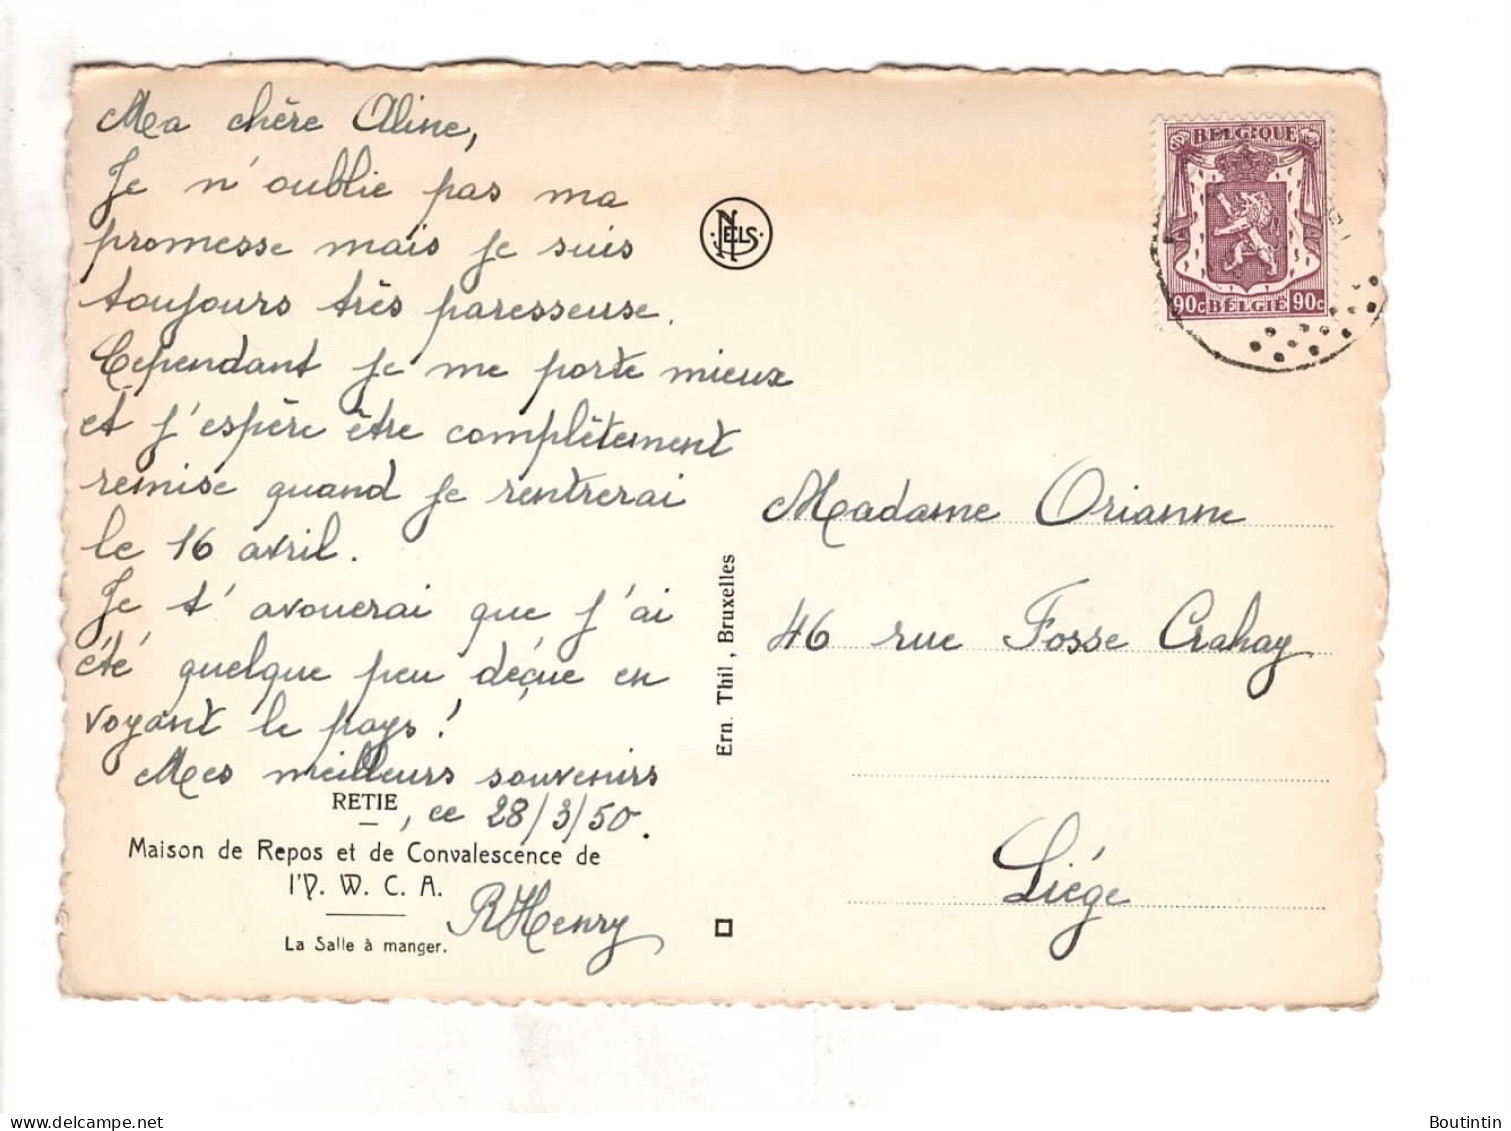 Ma chère Aline,
Je n'oublie pas ma
promesse mais je suis
toujours très paresseuse.
Cependant je me porte mieux
et j'espère être complètement
remise quand je rentrerai
le 16 avril.
Je t'avouerai que j'ai
été quelque peu déçue en
voyant le pays !
Mes meilleurs souvenirs
RETIE, ce 28/3/50.
Maison de Repos et de Convalescence de
l'Y. W. C. A.
RHenry
La Salle à manger.
NELS
Ern. Thil, Bruxelles
BELGIQUE
90c BELGIE 90c
Madame Orianne
46 rue Fosse Crahay
Liége
Boutintin